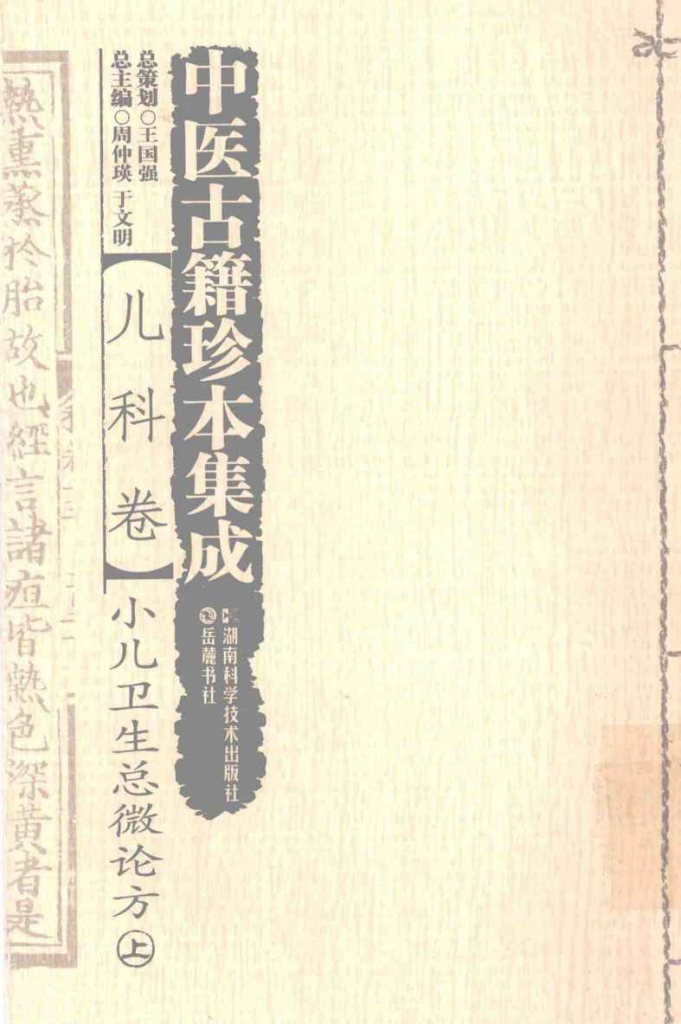 中医古籍珍本集成
湖南科学技术出版社
岳麓书社
总策划○王国强
总主编○周仲瑛 于文明
【儿科卷】
小儿卫生总微论方 上
熱熏蒸於胎故也經言諸疸皆熱色深黃者是